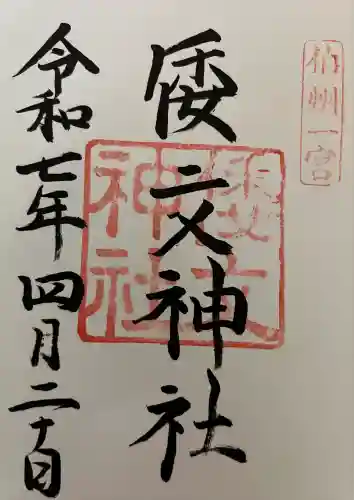 伯州一宮
倭文神社
倭文
神社
令和七年四月二十日